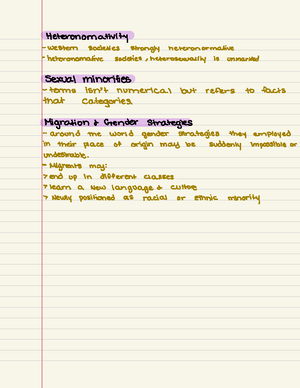 Heteronormativity
- Western societies strongly heteronormative
- heteronomative societies, heterosexuality is unmarked
Sexual minorities
- terms isn't numerical but refers to facts
that categories.
Migration & Gender Strategies
- around the world gender strategies they employed
in their place of origin may be suddenly impossible or
undesirable.
- Migrants may:
> end up in different classes
> learn a new language & culture
> Newly positioned as racial or ethnic minority